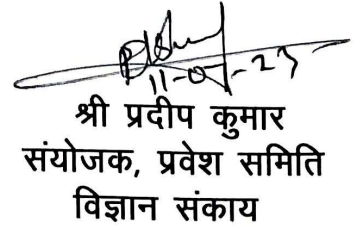 श्री प्रदीप कुमार
संयोजक, प्रवेश समिति
विज्ञान संकाय